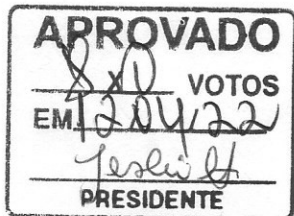 APROVADO
8x0 VOTOS
EM 12/04/22
PRESIDENTE